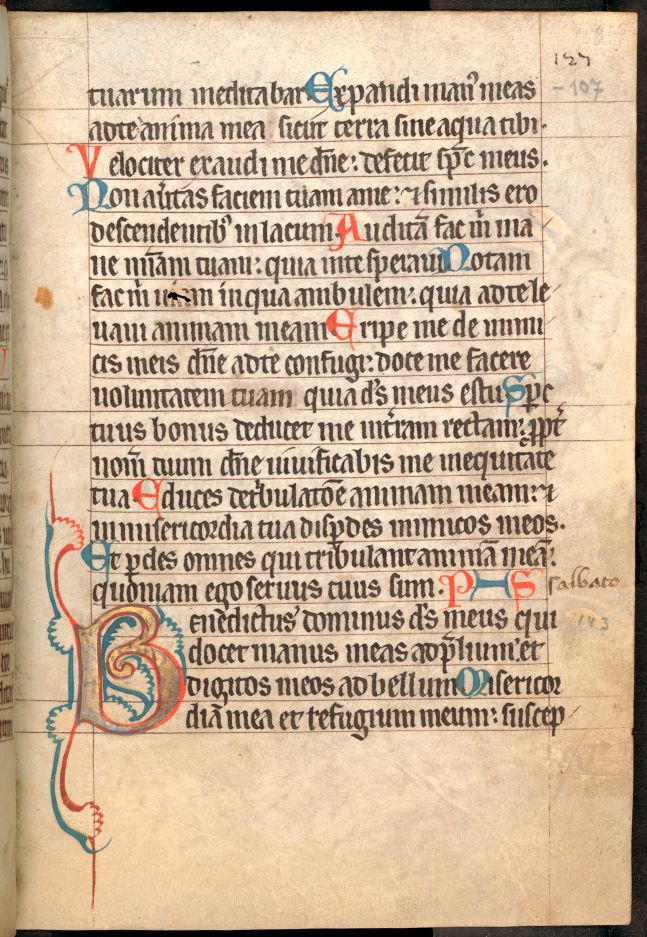 127
-107
tuarum meditabar. Expandi man᷒ meas
ad te anima mea sicut terra sine aqua tibi.
Velociter exaudi me dn̄e: defecit sp̄c meus.
Non au̾tas faciem tuam a me: ⁊ similis ero
descendentib᷒ in lacum. Auditā fac m̄ ma
ne mīam tuam: quia in te speraui. Notam
fac m̄ uiam in qua ambulem: quia ad te le
uaui animam meam. Eripe me de inimi
cis meis dn̄e ad te confugi: doce me facere
uoluntatem tuam quia ds̄ meus es tu. Sp̄c
tuus bonus deducet me in t̾ram rectam: ꝓpt̾
nom̄ tuum dn̄e uiuificabis me in equitate
tua. Educes de t̾bulatōe animam meam: ⁊
in misericordia tua disꝑdes inimicos meos.
Et ꝑdes omnes qui tribulant animā meā:
quoniam ego seruus tuus sum. PS
Salbato
143
Benedictus dominus ds̄ meus qui
docet manus meas ad p̄lium: et
digitos meos ad bellum. Misericor
dia mea et refugium meum: suscep